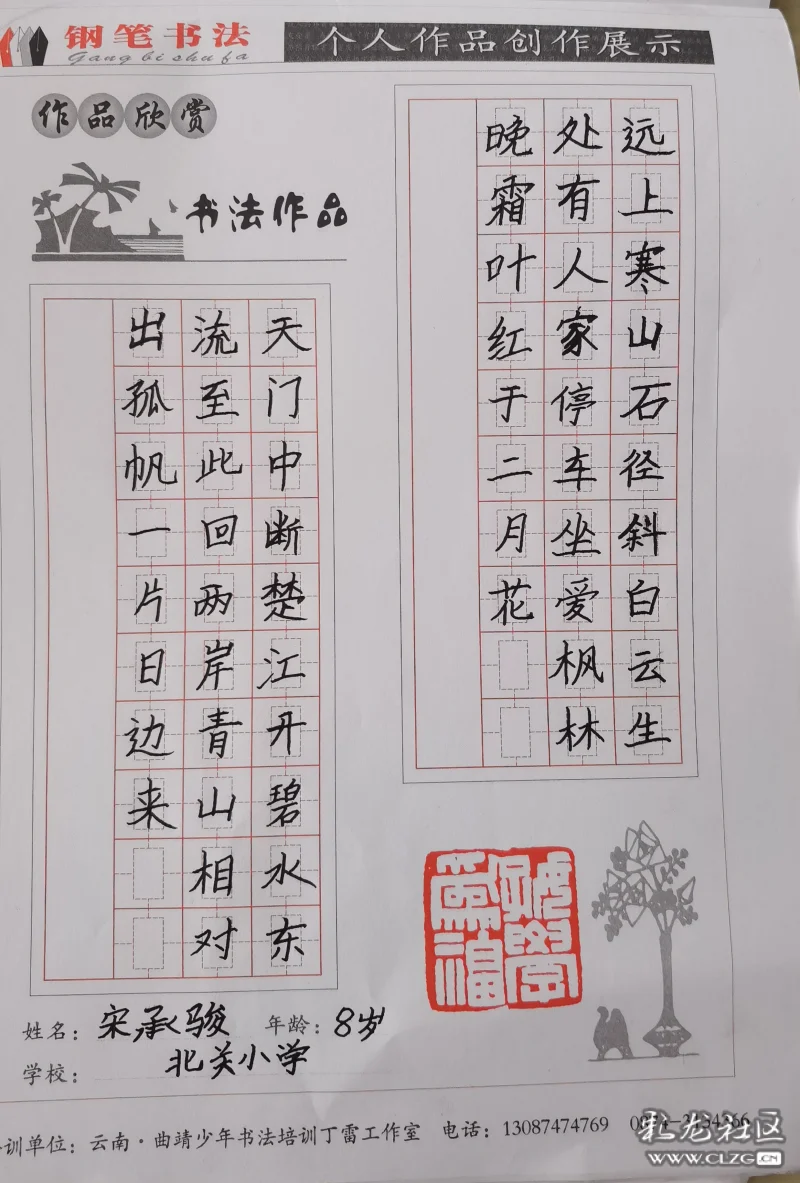 钢笔书法
Gang bi shu fa
个人作品创作展示
作品欣赏
书法作品
远上寒山石径斜白云生
处有人家停车坐爱枫林
晚霜叶红于二月花
天门中断楚江开碧水东
流至此回两岸青山相对
出孤帆一片日边来
姓名：宋承骏 年龄：8岁
学校：北关小学
训单位：云南·曲靖少年书法培训丁雷工作室 电话：13087474769
私龙社区
www.CLZG.CN